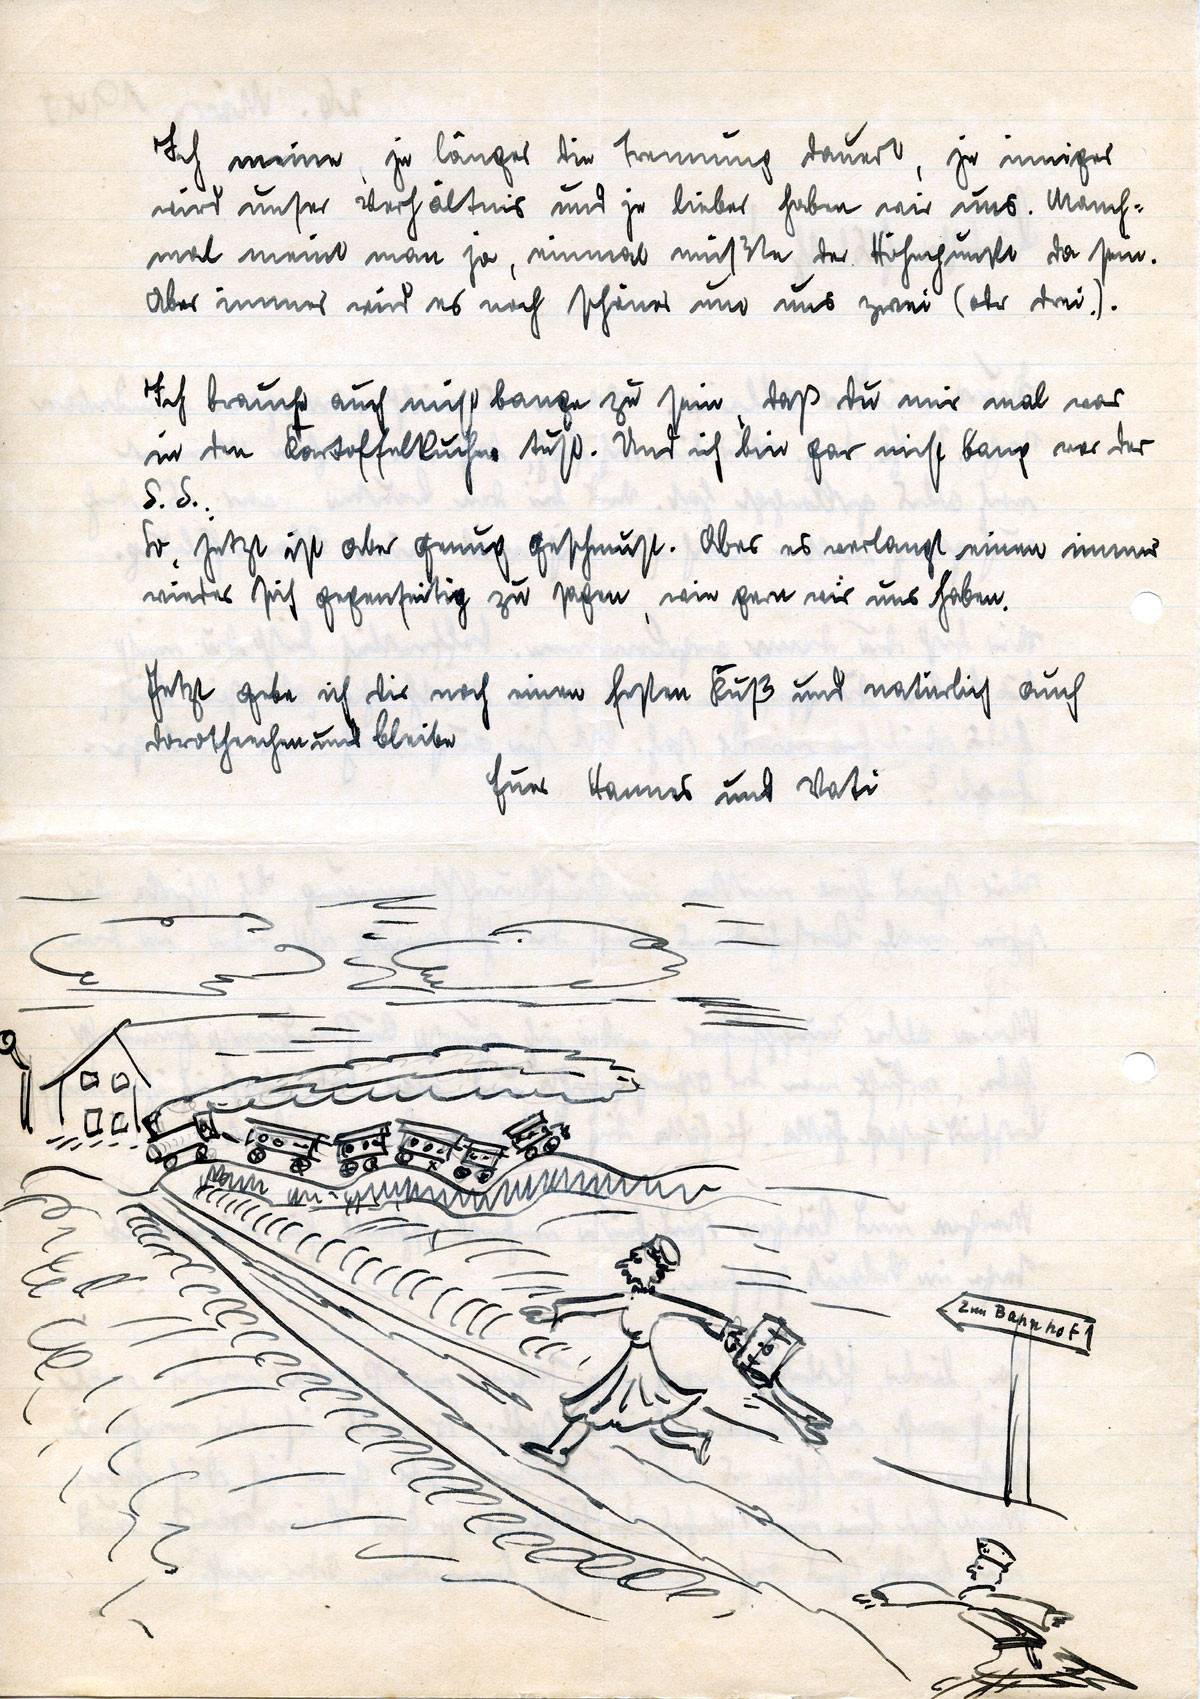 Ich meine, je länger die Trennung dauert, je inniger
wird unser Verhältnis und je lieber haben wir uns. Manch-
mal meint man ja, einmal müßte der Höhepunkt da sein.
Aber immer wird es noch schöner um uns zwei (oder drei!).
Ich brauche auch nicht bange zu sein, daß du mir mal was
in den Kartoffelkuchen tust. Und ich bin gar nicht bang vor der
S.S.
So, jetzt ist aber genug geschmust. Aber es verlangt einen immer
wieder sich gegenseitig zu sagen, wie gern wir uns haben.
Jetzt gebe ich dir noch einen festen Kuß und natürlich auch
Dorotheechen und bleibe
Euer Hannes und Vati
Zum Bahnhof